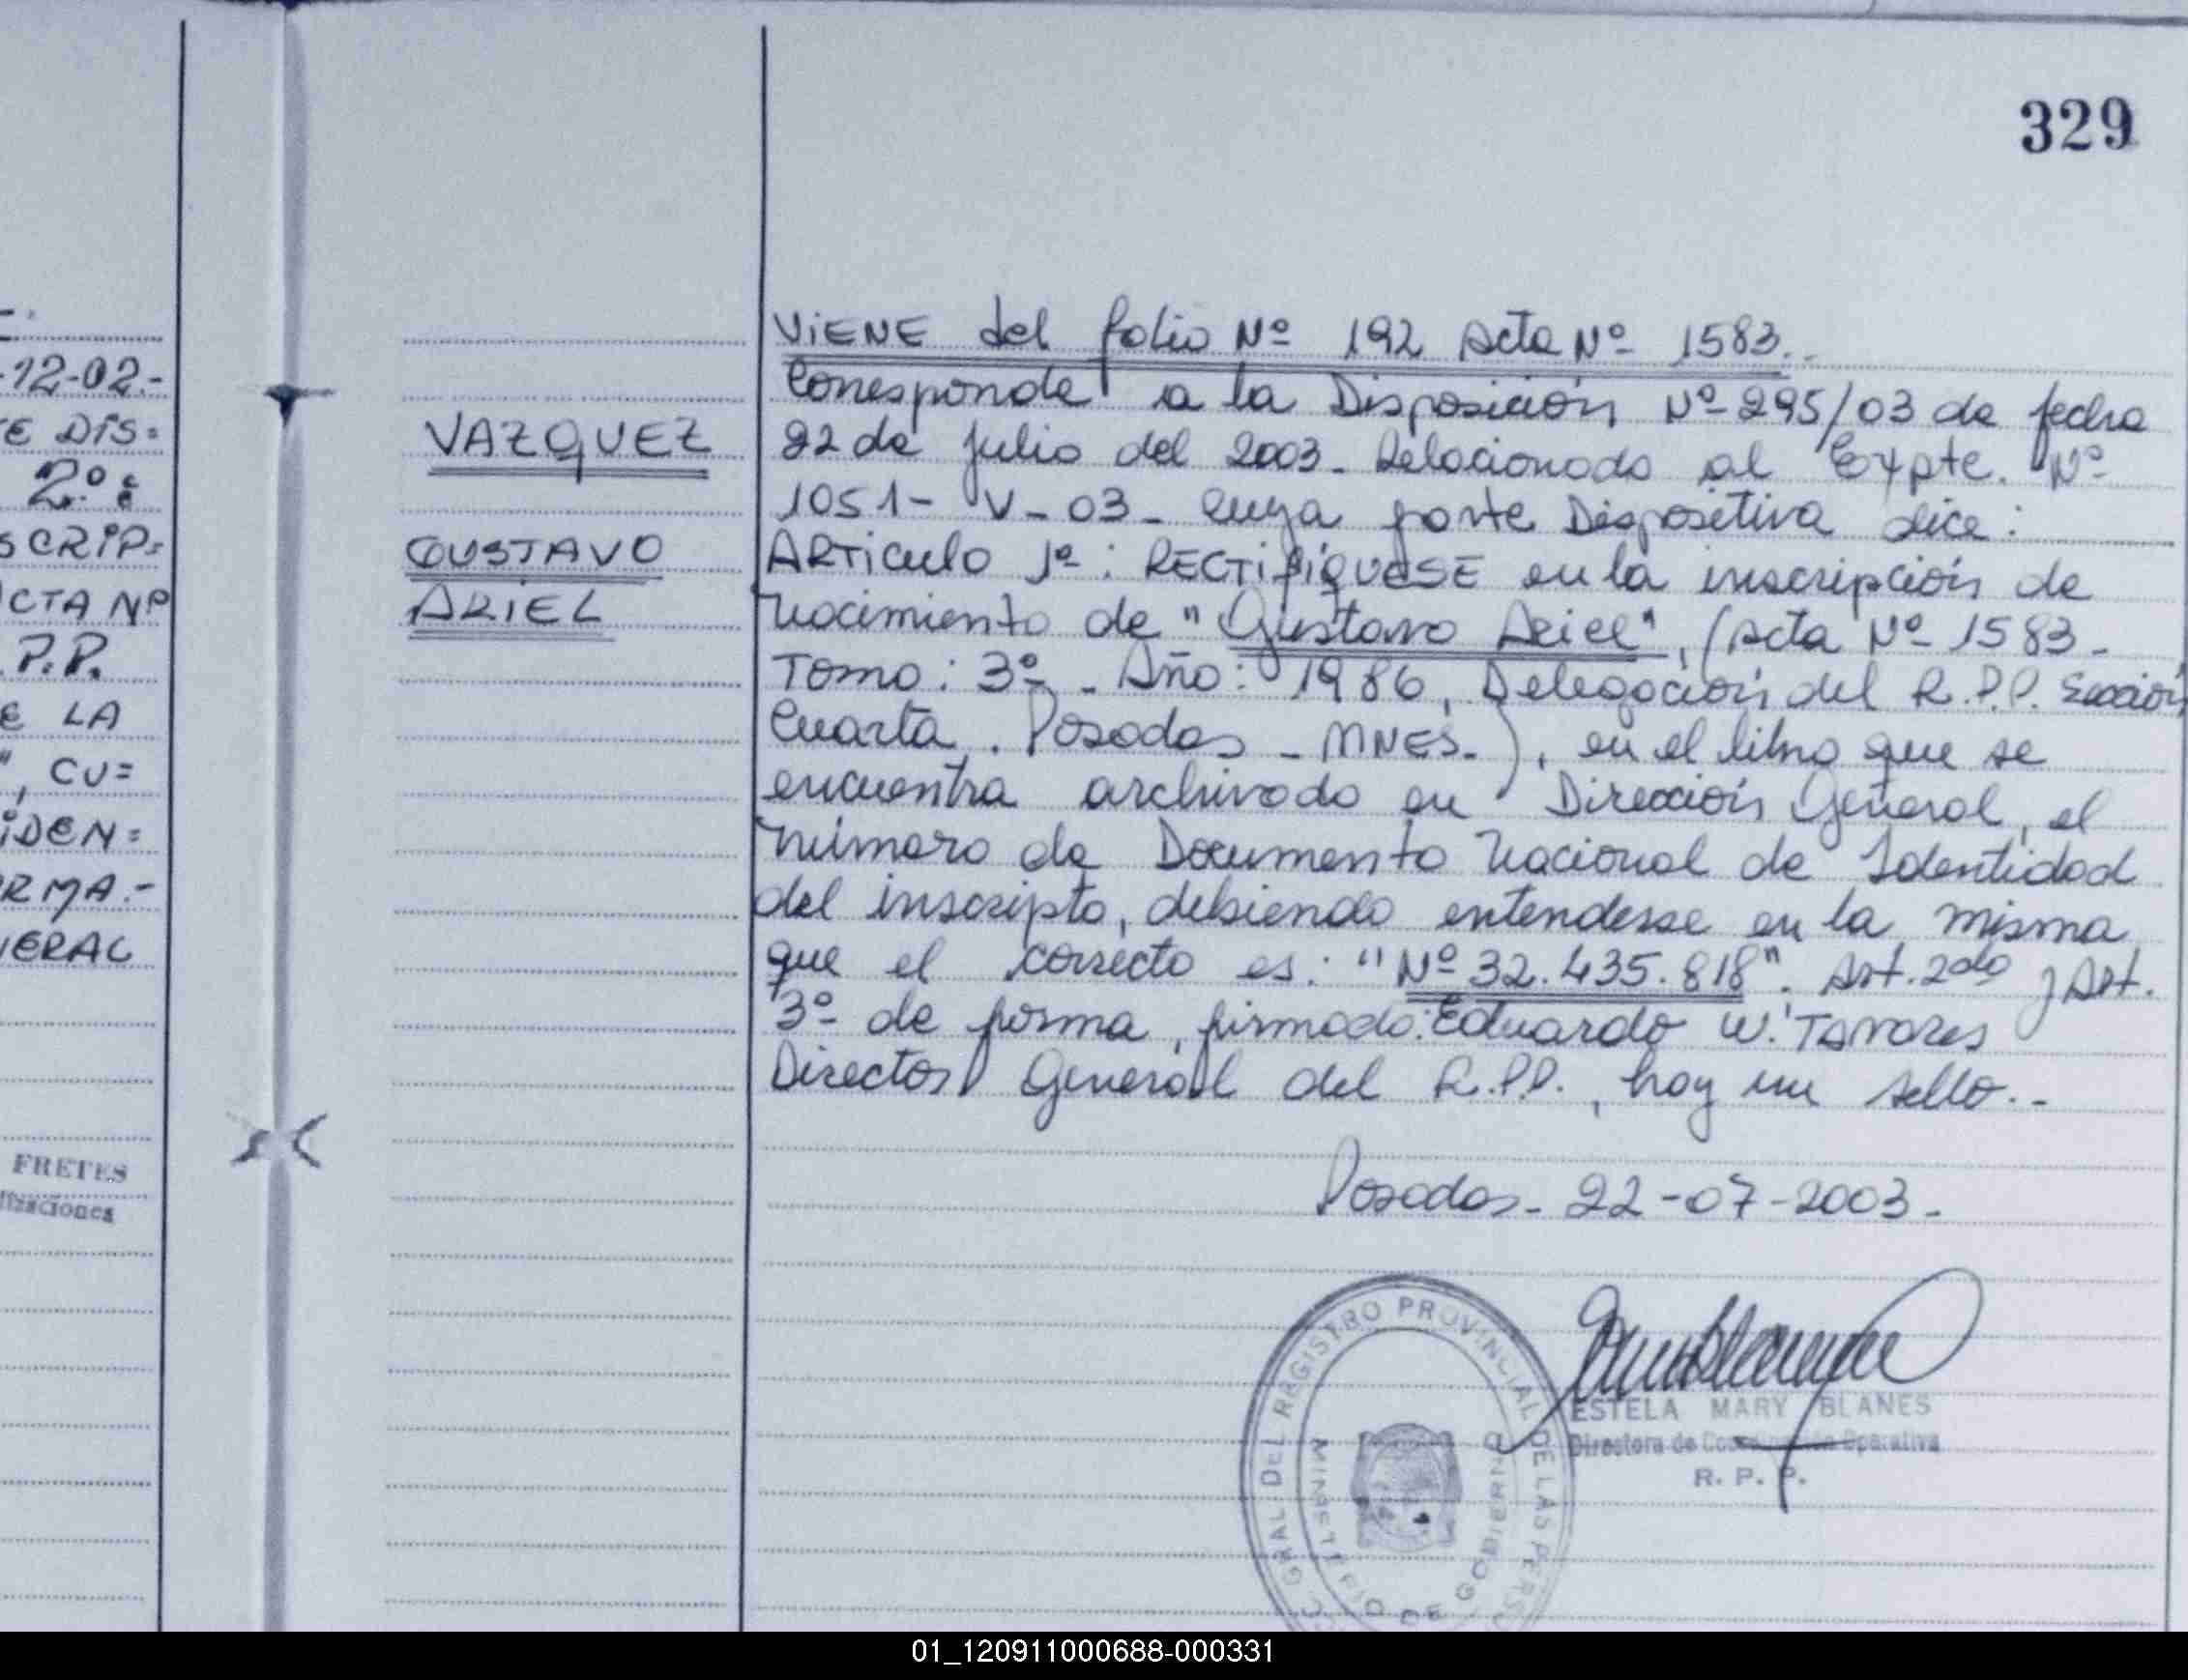 329
-12-02.-
E DIS=
2º é
SCRIP=
ACTA Nº
P.P.
E LA
", CU=
IDEN=
RMA.-
NERAL
FRETES
lizaciones
VAZQUEZ
GUSTAVO
ARIEL
VIENE del folio Nº 192 Acta Nº 1583.-
Corresponde a la Disposición Nº 295/03 de fecha
22 de Julio del 2003- Relacionado al Expte. Nº
1051- V- 03- cuya parte Dispositiva dice:
ARTiculo 1º: RECTIFÍQUESE en la inscripción de
nacimiento de "Gustavo Ariel", (Acta Nº 1583-
Tomo: 3º- Año: 1986, Delegación del R.P.P. Sección
Cuarta. Posadas - MNES-), en el libro que se
encuentra archivado en Dirección General, el
número de Documento Nacional de Identidad
del inscripto, debiendo entenderse en la misma
que el correcto es: "Nº 32.435.818". Art. 2do y Art.
3º de forma, firmado: Eduardo W. Tavares
Director General del R.P.P., hay un sello.-
Posadas- 22-07-2003-
GRAL DEL REGISTRO PROVINCIAL DE LAS PERSO
MINISTERIO DE GOBIERNO
ESTELA MARY BLANES
Directora de Coordinación Operativa
R. P. P.
01_120911000688-000331